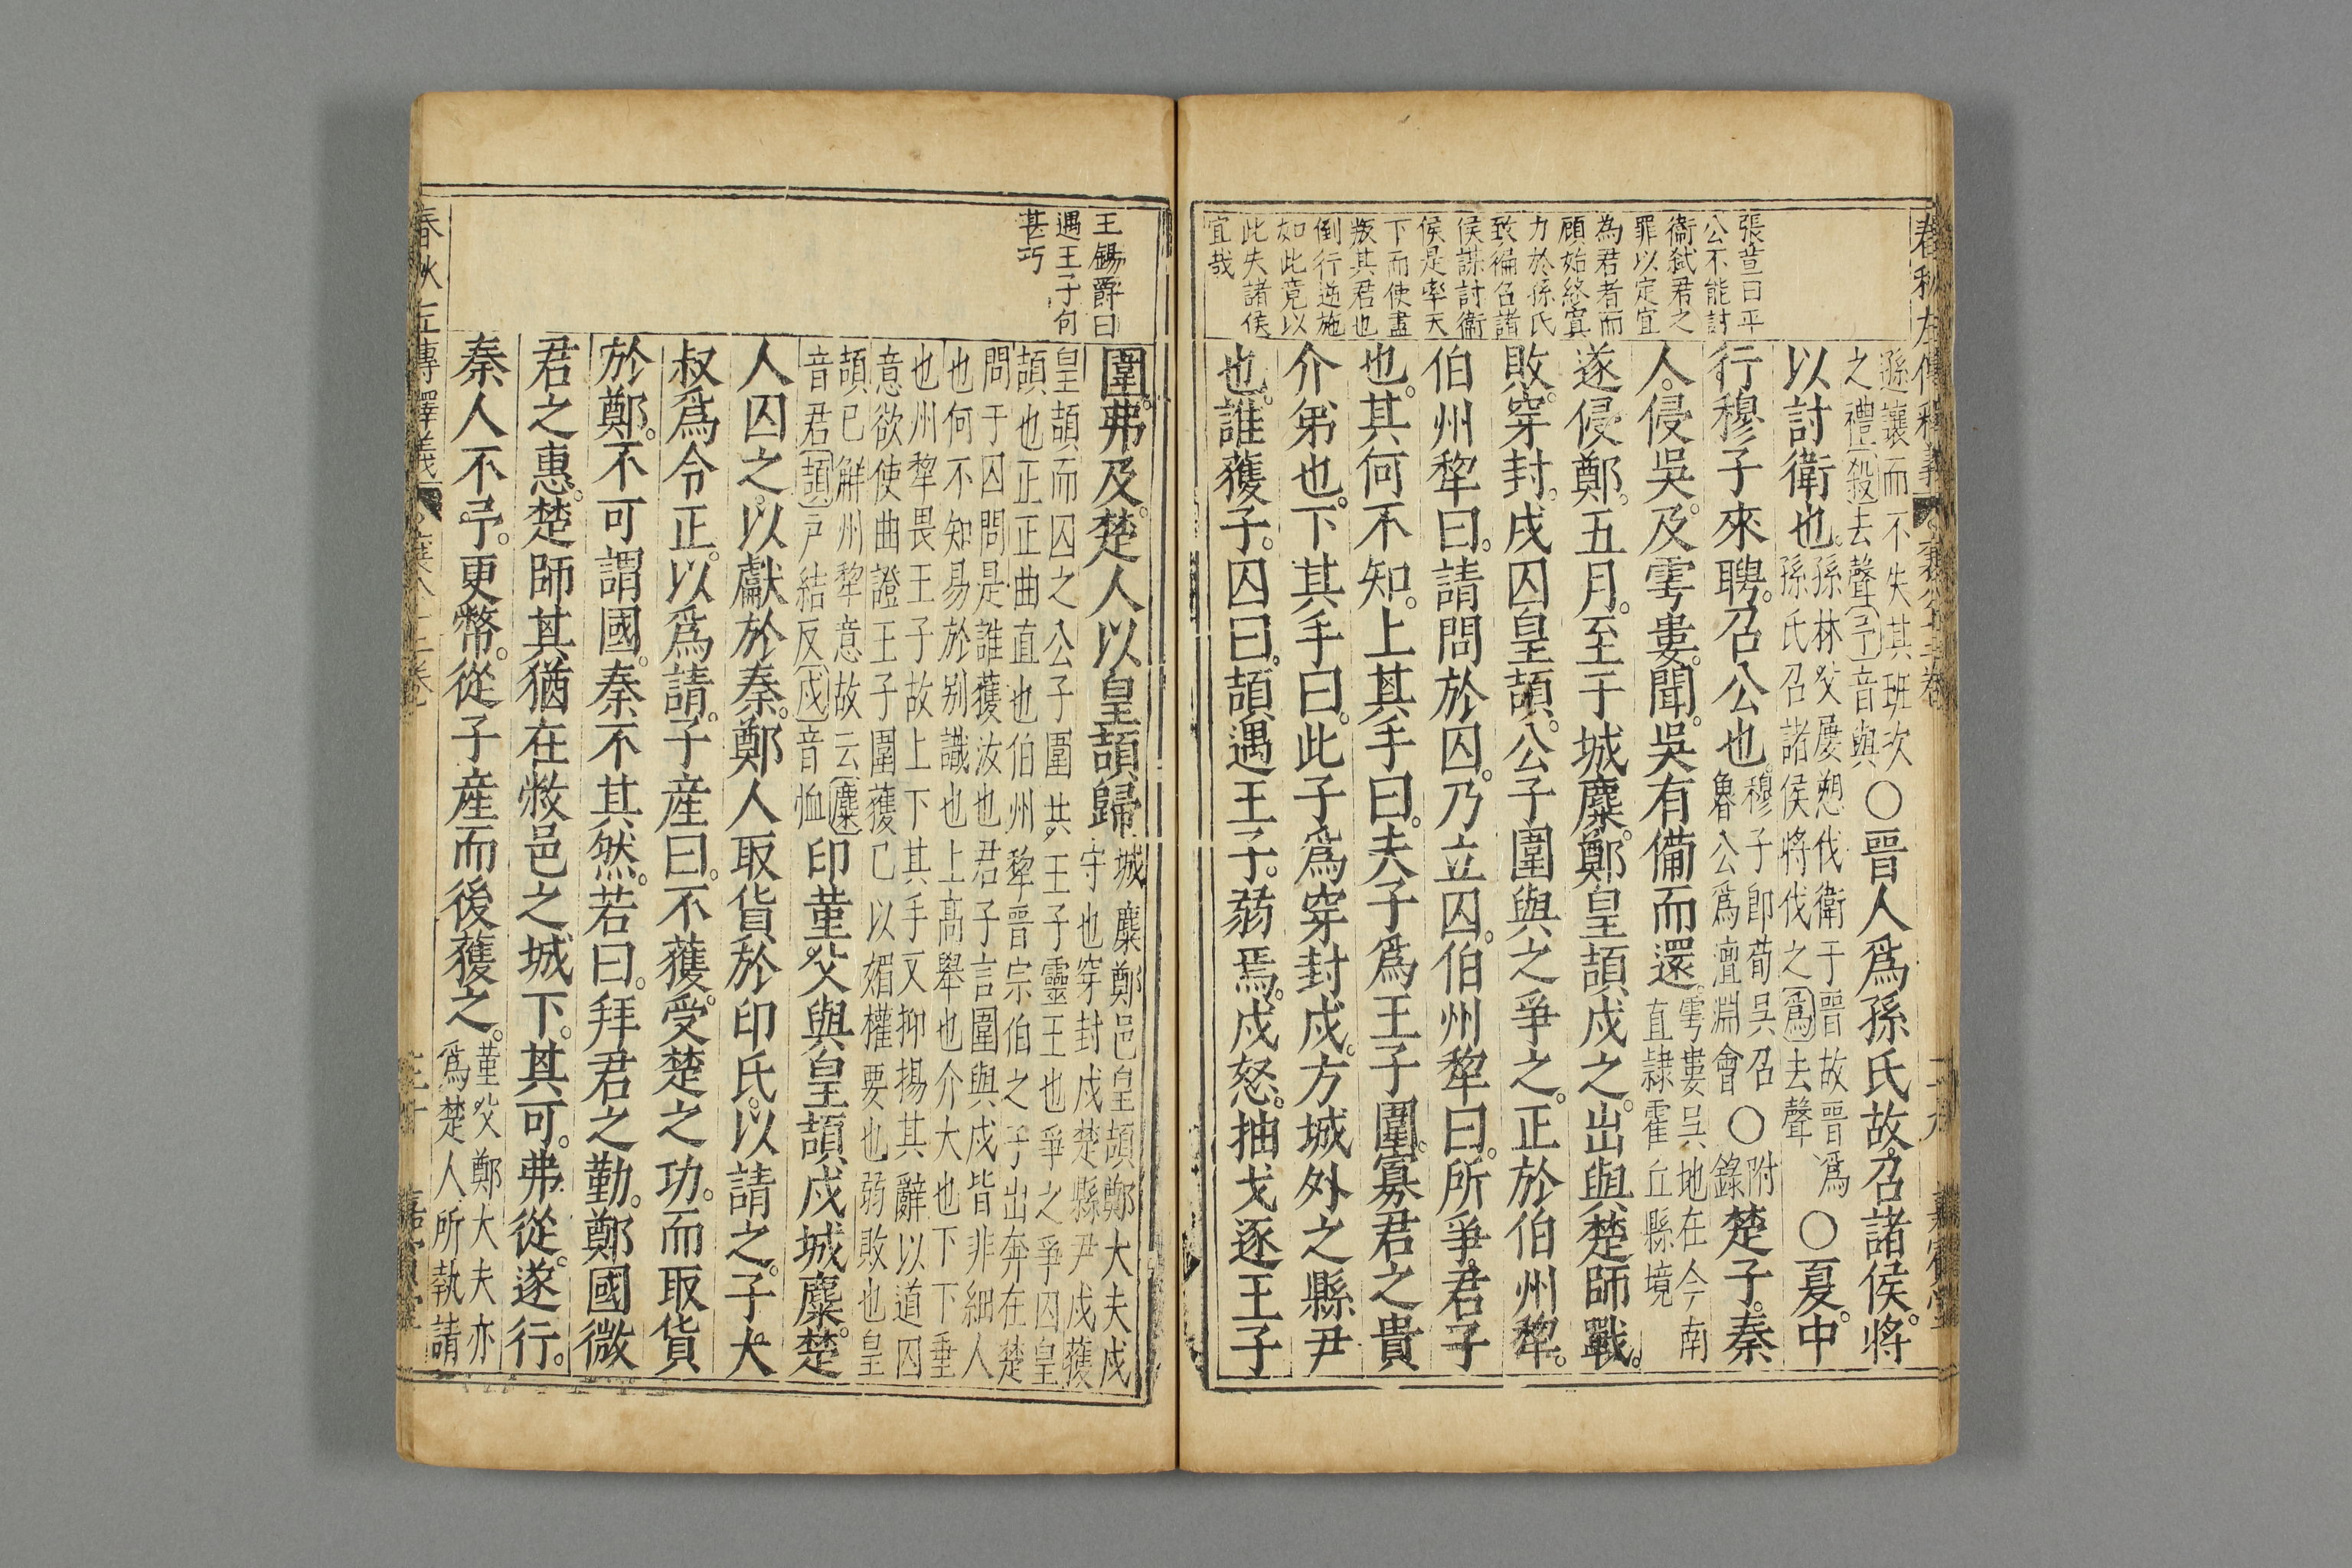 春秋左傳釋義
張萱曰平
公不能討
衞弑君之
罪以定宜
為君者而
顧始終寘
力於孫氏
致徧召諸
侯謀討衞
侯是率天
下而使盡
叛其君也
倒行逆施
如此竟以
此失諸侯
宜哉
遜讓而不失其班次
之禮殺去聲予音與
○晉人爲孫氏故。召諸侯。將
以討衛也。
孫林父屢愬伐衛于晉故晉爲
孫氏召諸侯將伐之爲去聲
○夏。中
行穆子來聘。召公也。
穆子卽荀吳召
魯公爲澶淵會
○
附
錄
楚子。秦
人。侵吳。及雩婁。聞吳有備而還。
雩婁吳地在今南
直隷霍丘縣境
遂侵鄭。五月。至于城麇。鄭皇頡戍之。出與楚師戰。
敗。穿封戌囚皇頡。公子圍與之爭之。正於伯州犂。
伯州犂曰。請問於囚。乃立囚。伯州犂曰。所爭。君子
也。其何不知。上其手曰。夫子爲王子圍。寡君之貴
介弟也。下其手曰。此子爲穿封戌。方城外之縣尹
也。誰獲子。囚曰。頡遇王子。弱焉。戌怒。抽戈逐王子
王錫爵曰
遇王子句
甚巧
圍。弗及。楚人以皇頡歸。
城麇鄭邑皇頡鄭大夫戍
守也穿封戌楚縣尹戌獲
皇頡而囚之公子圍共王子靈王也爭之爭囚皇
頡也正正曲直也伯州犂晉宗伯之子出奔在楚
問于囚問是誰獲汝也君子言圍與戌皆非細人
也何不知易於别識也上高舉也介大也下下垂
也州犂畏王子故上下其手又抑揚其辭以道囚
意欲使曲證王子圍獲已以媚權要也弱敗也皇
頡已解州犂意故云麇
音君頡戸結反戌音恤
印堇父與皇頡戍城麇。楚
人囚之。以獻於秦。鄭人取貨於印氏。以請之。子大
叔爲令正。以爲請。子產曰。不獲。受楚之功。而取貨
於鄭。不可謂國。秦不其然。若曰。拜君之勤。鄭國微
君之惠。楚師其猶在敝邑之城下。其可。弗從。遂行。
秦人不予。更幣。從子產而後獲之。
堇父鄭大夫亦
爲楚人所執請
春秋左傳釋義